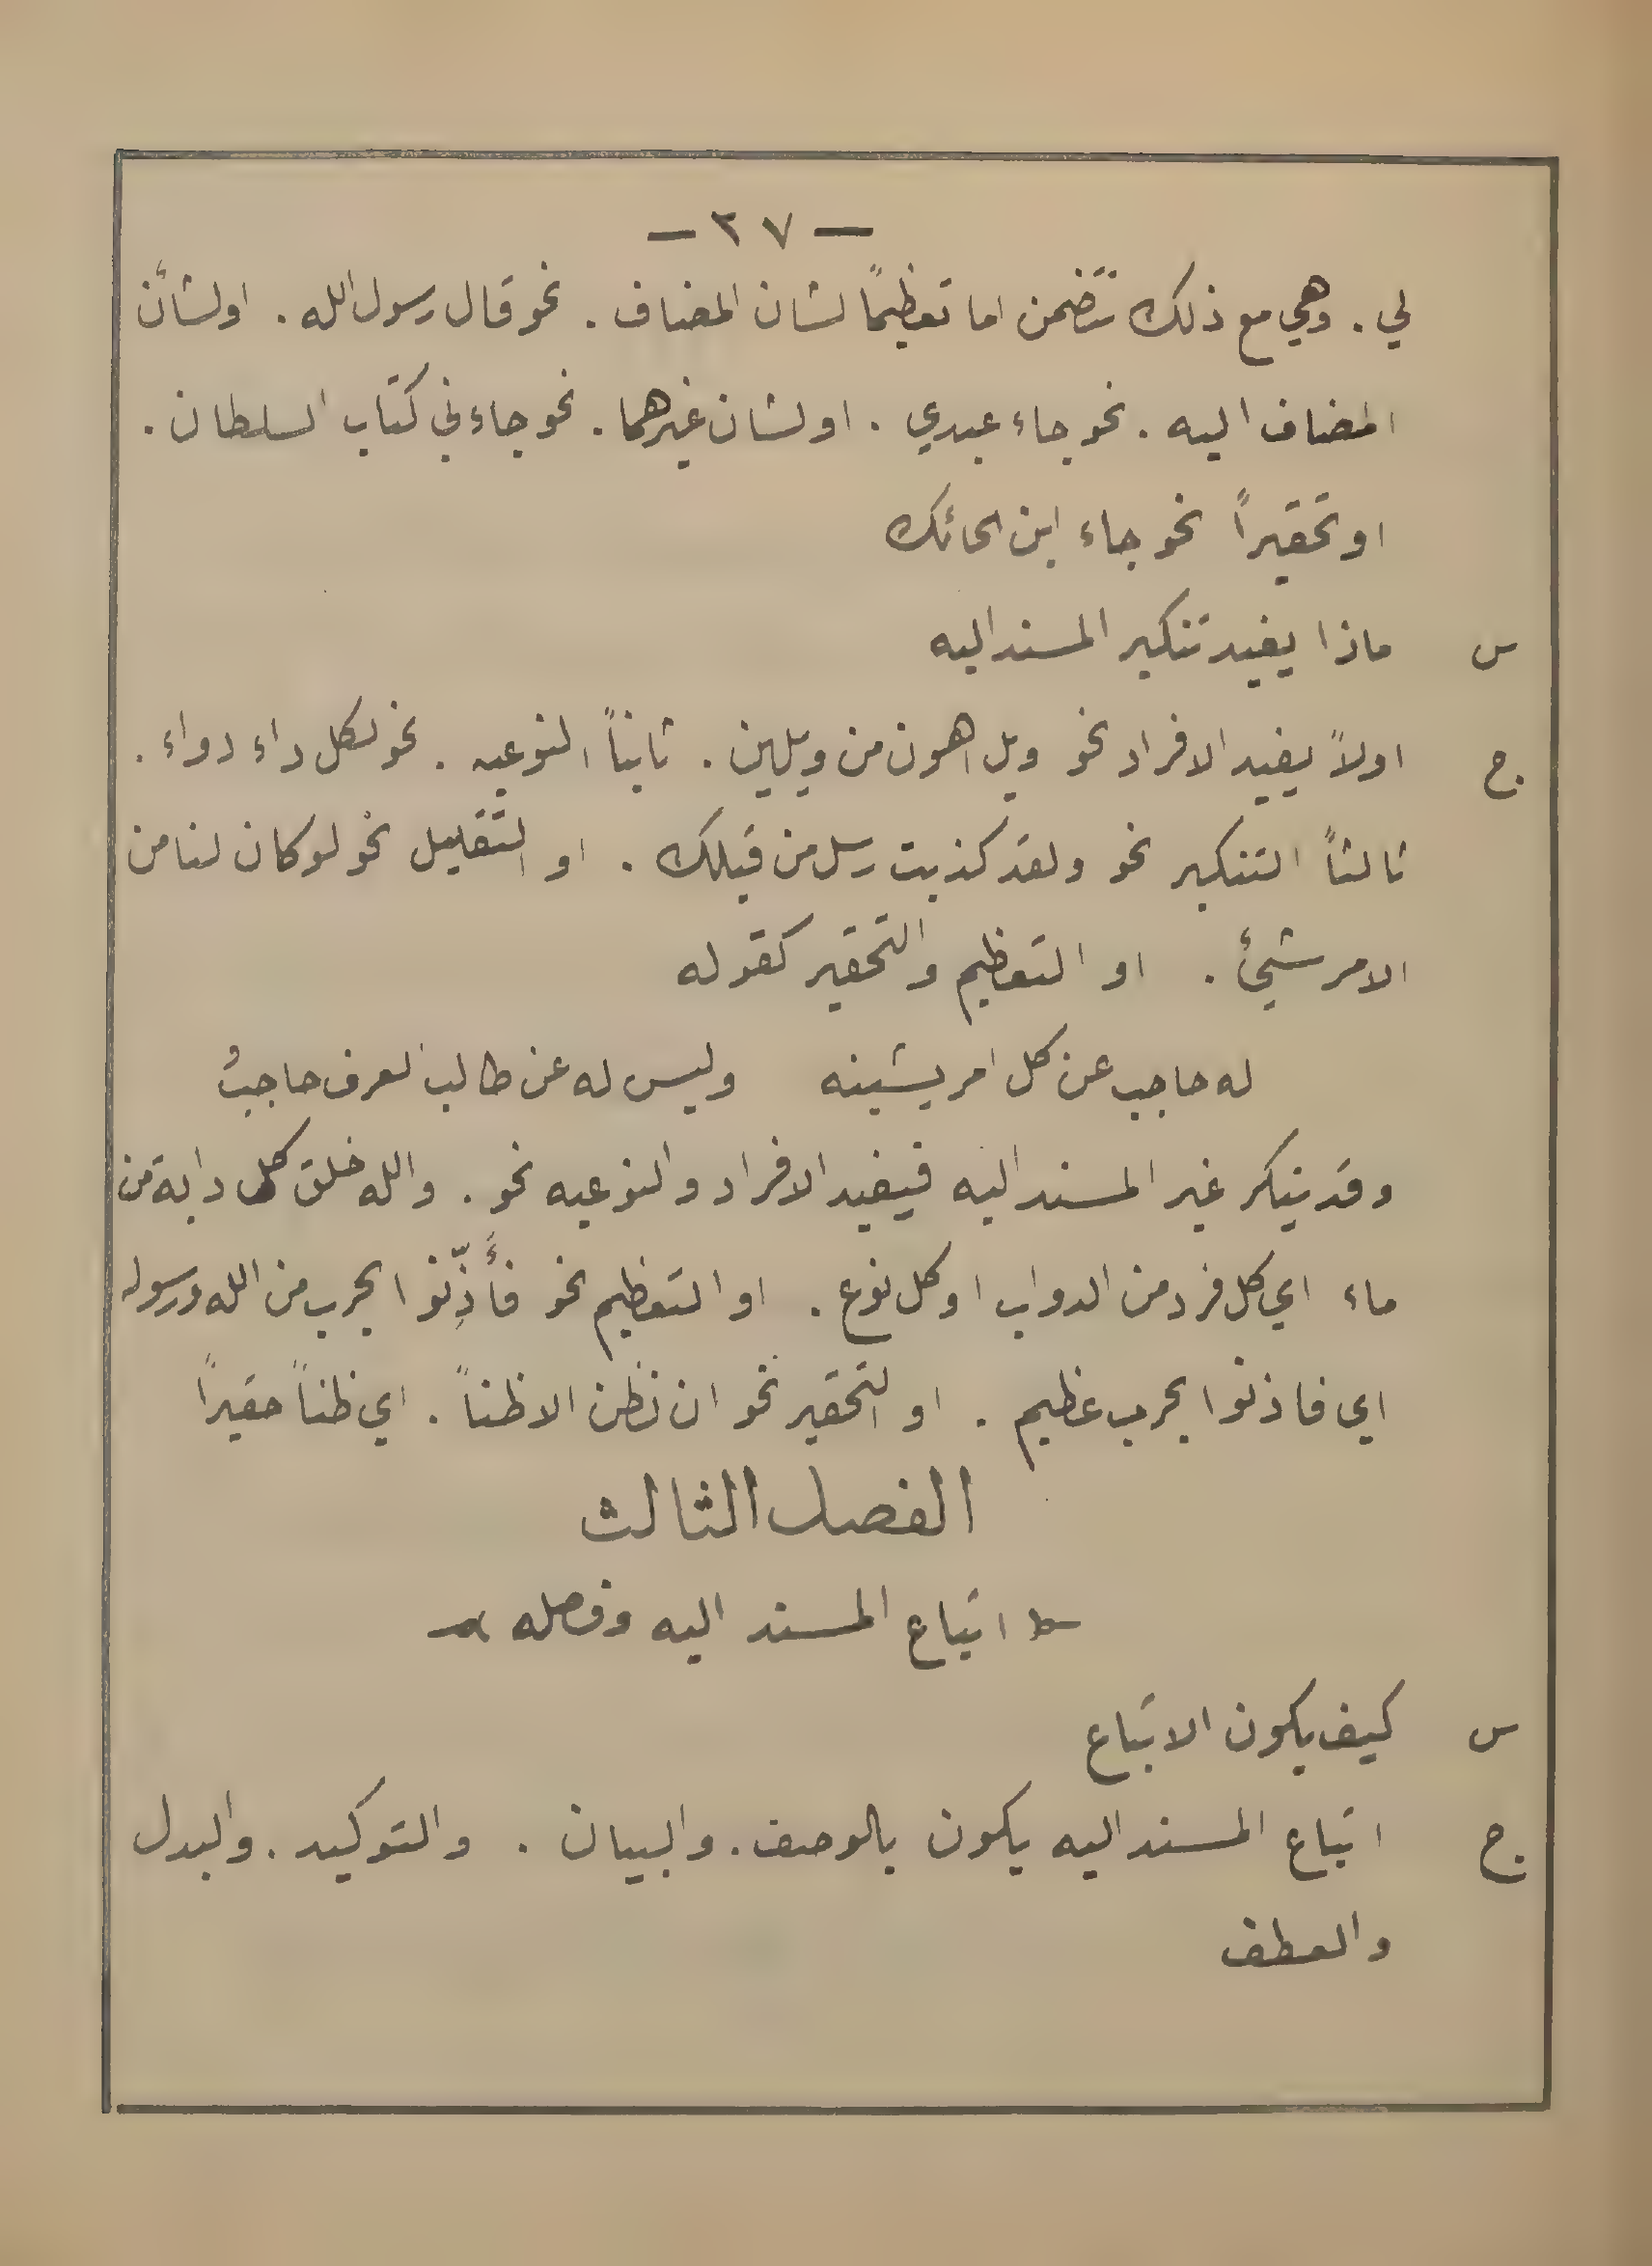 — ٢٧ —
لي . وهي مع ذلك تتضمن اما تعظيمًا لشان المضاف . نحو قال رسول الله . اولشأن
المضاف اليه . نحو جاء عبدي . اولشان غيرهما . نحو جاء ني كتاب السلطان .
او تحقيراً نحو جاء ابن الحائك
س ماذا يفيد تنكير المسند اليه
ج اولاً يفيد الافراد نحو ويل اهون من ويلين . ثانياً النوعيه . نحو لكل داء دواء .
ثالثاً التنكير نحو ولقد كذبت رسل من قبلك . او التقليل نحو لو كان لنا من
الامر شيئ . او التعظيم والتحقير كقوله
له حاجب عن كل امر يشينه وليس له عن طالب العرف حاجبُ
وقد ينكر غير المسند اليه فيفيد الافراد والنوعيه نحو . والله خلق كل دابة من
ماء اي كل فرد من الدواب او كل نوع . او التعظيم نحو فأَذِّنوا بحرب من الله ورسوله
اي فاذنوا بحرب عظيم . او التحقير نحو ان نظن الا ظناً . اي ظناً حقيراً
الفصل الثالث
اتباع المسند اليه وفصله
س كيف يكون الاتباع
ج اتباع المسند اليه يكون بالوصف . والبيان . والتوكيد . والبدل
والعطف